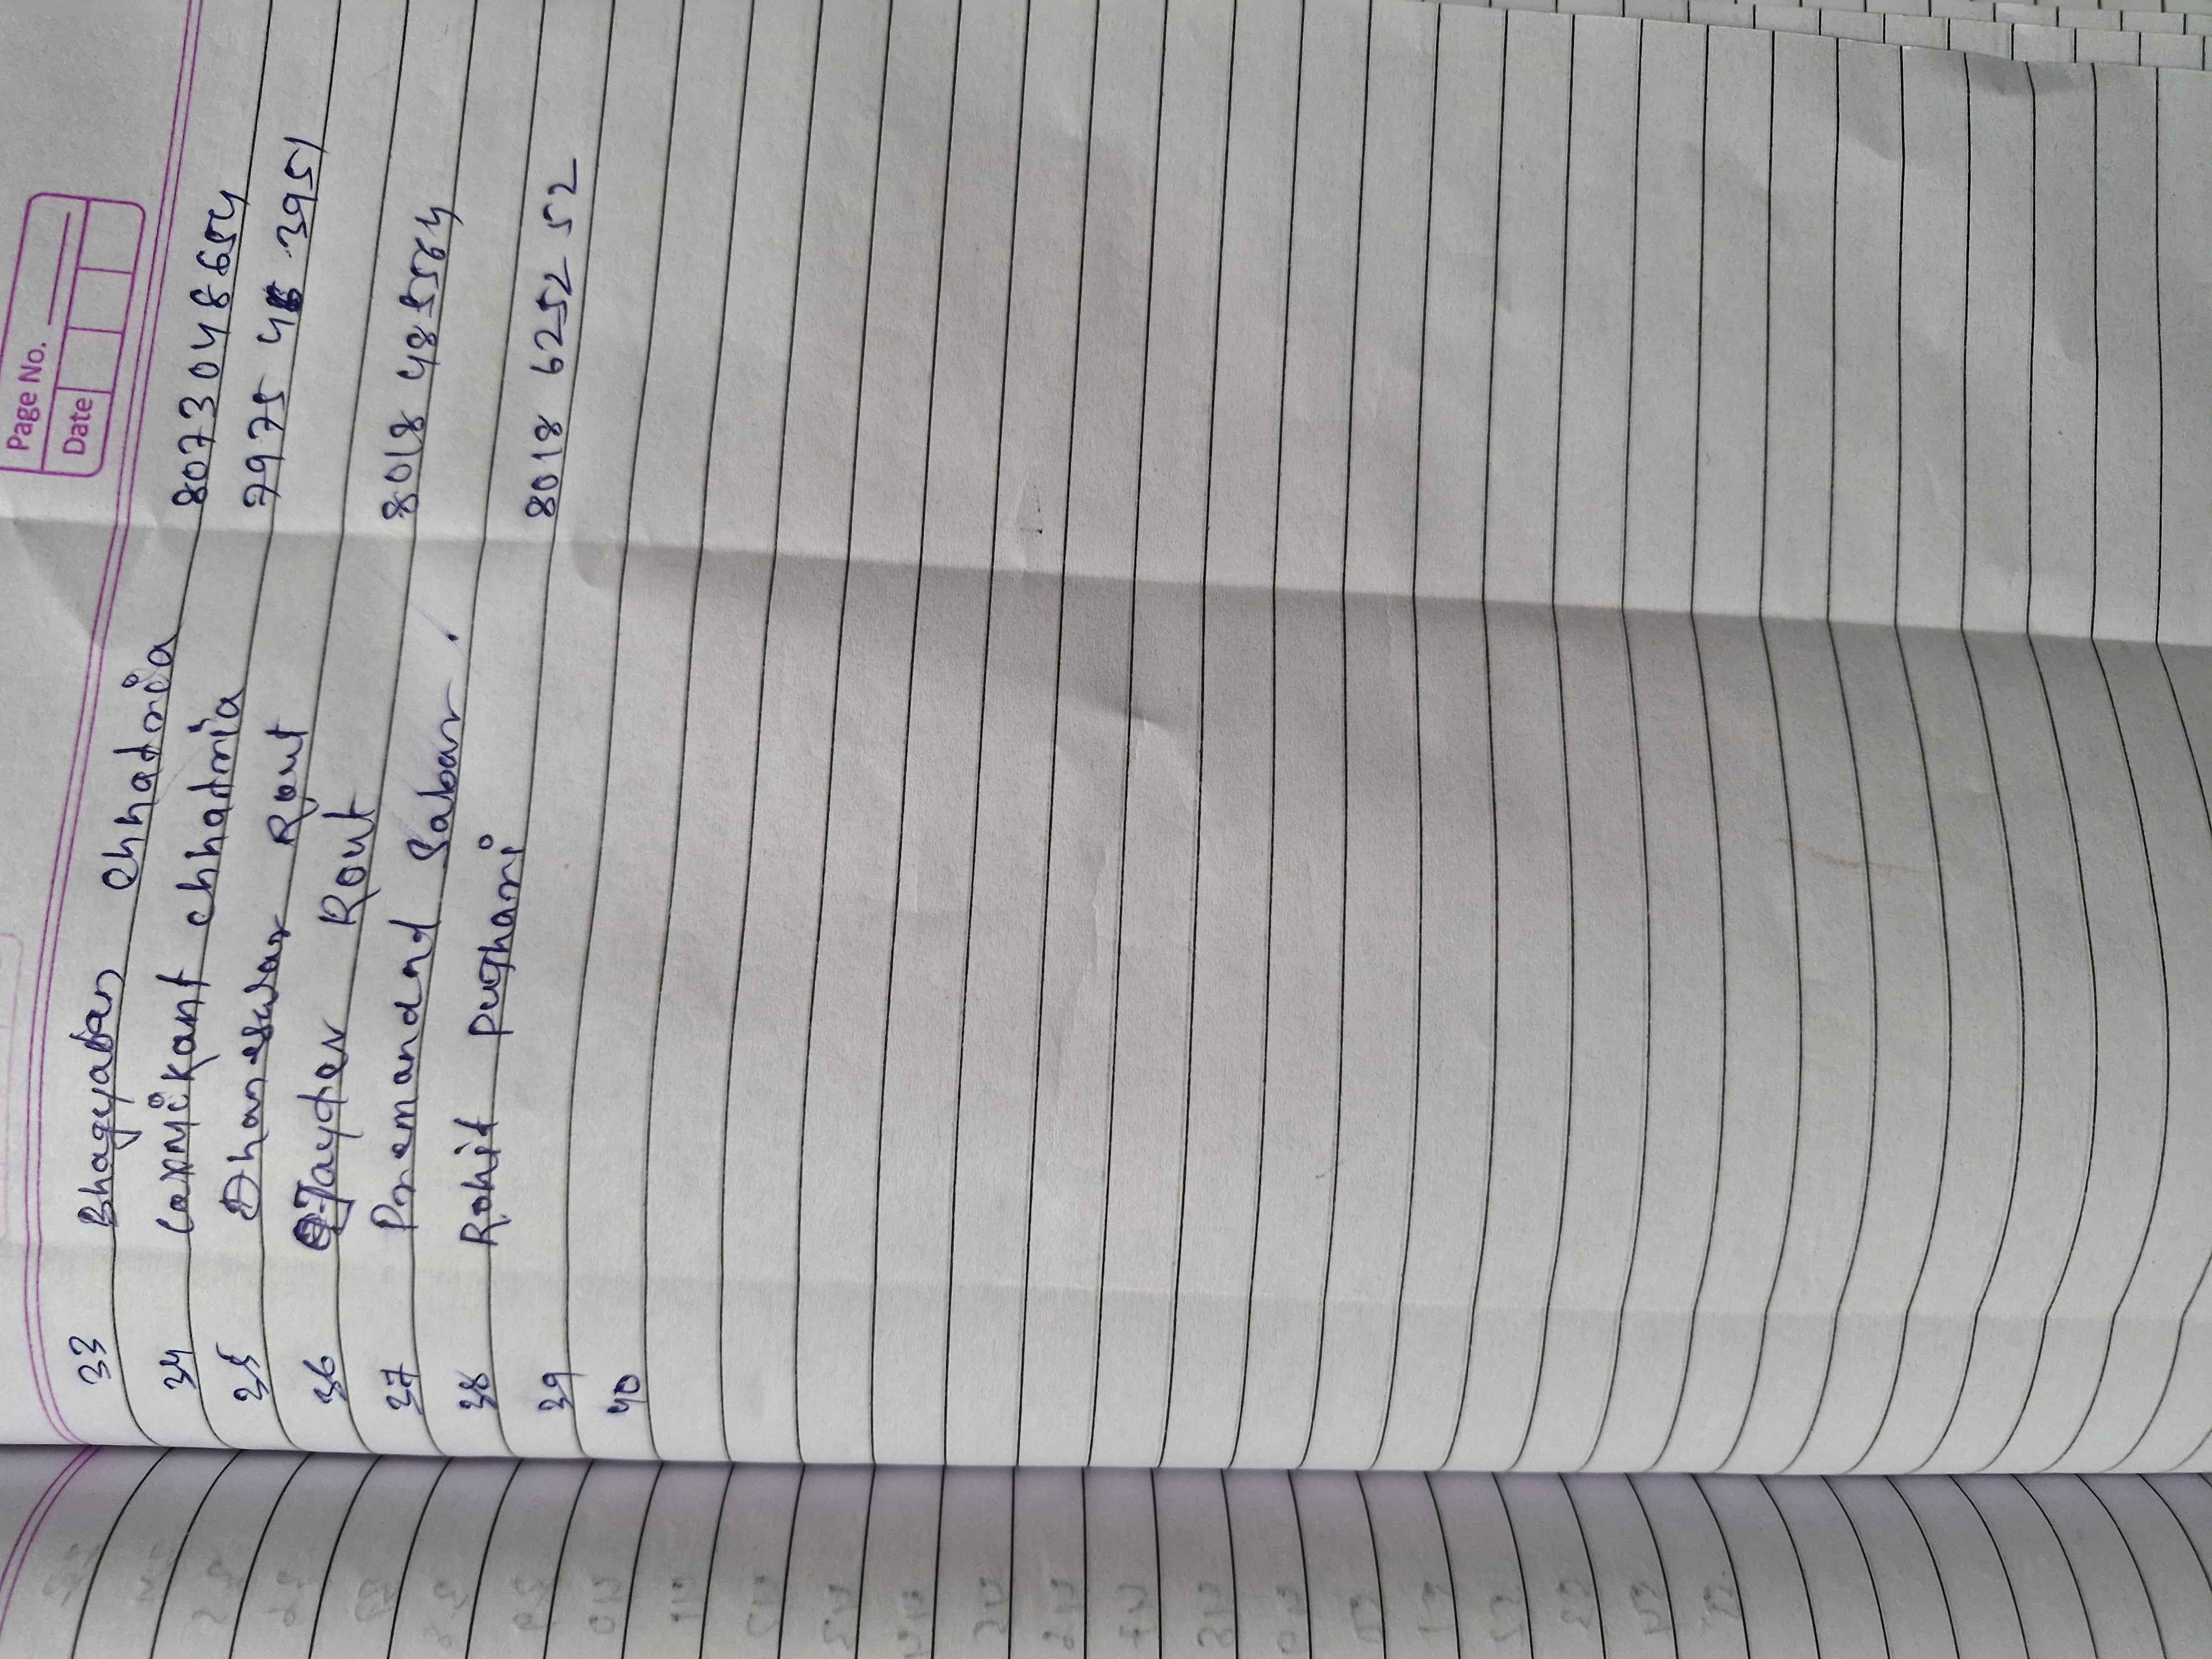 Page No.
Date
33 Bhagyaban Chhatria 8073048654
34 Laxmikant chhatria 7975 3951
35 Dhaneswar Rout
36 Jaydev Rout 8018 485564
37 Premanand Sabar.
38 Rohit pujhari 8018 6252 52
39
40